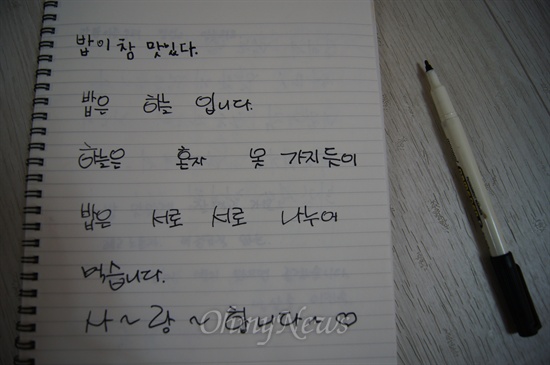 밥이 참 맛있다.
밥은 하늘 입니다.
하늘은 혼자 못 가지듯이
밥은 서로 서로 나누어
먹습니다.
사~랑~합니다~♡
OhmyNews